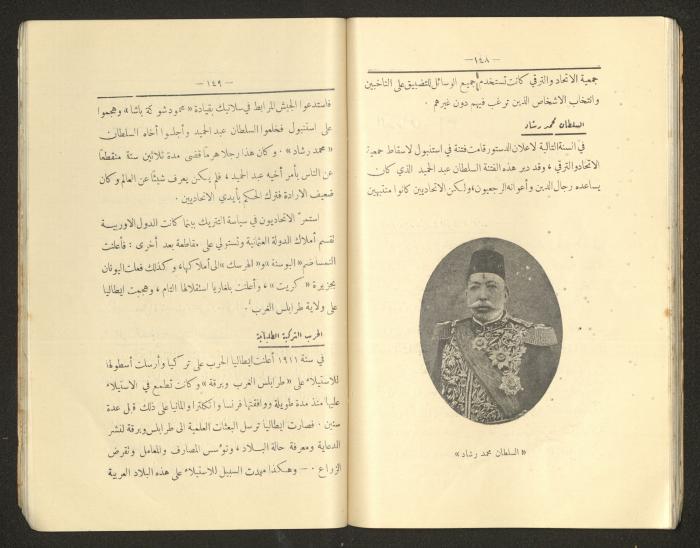 — ١٤٨ —
جمعية الاتحاد والترقي كانت تستخدم جميع الوسائل للتضييق على الناخبين
وانتخاب الاشخاص الذين ترغب فيهم دون غيرهم .
السلطان محمد رشاد
في السنة التالية لاعلان الدستور قامت فتنة في استنبول لاسقاط جمعية
الاتحاد والترقي ، وقد دبر هذه الفتنة السلطان عبد الحميد الذي كان
يساعده رجال الدين وأعوانه الرجعيون ولكن الاتحاديين كانوا منتبهين
« السلطان محمد رشاد »
— ١٤٩ —
فاستدعوا الجيش المرابط في سلانيك بقيادة « محمود شوكة باشا » وهجموا
على استنبول فخلعوا السلطان عبد الحميد وأجلسوا أخاه السلطان
« محمد رشاد » . وكان هذا رجلا هرما قضى مدة ثلاثين سنة منقطعا
عن الناس بأمر أخيه عبد الحميد ، فلم يكن يعرف شيئا عن العالم وكان
ضعيف الارادة فترك الحكم بأيدي الاتحاديين .
استمرّ الاتحاديون في سياسة التتريك بينما كانت الدول الاوربية
تقسم أملاك الدولة العثمانية وتستولي على مقاطعة بعد أخرى : فأعلنت
النمسا ضم « البوسنة » و« الهرسك » الى أملاكها، وكذلك فعلت اليونان
بجزيرة « كريت » ، وأعلنت بلغاريا استقلالها التام ، وهجمت ايطاليا
على ولاية طرابلس الغرب .
الحرب التركية الطليانية
في سنة ١٩١١ أعلنت ايطاليا الحرب على تركيا وأرسلت أسطولها
للاستيلاء على « طرابلس الغرب وبرقة » وكانت تطمع في الاستيلاء
عليها منذ مدة طويلة ووافقتها فرنسا وانكلترا والمانيا على ذلك قبل عدة
سنين . فصارت ايطاليا ترسل البعثات العلمية الى طرابلس وبرقة لنشر
الدعاية ومعرفة حالة البلاد ، وتؤسس المصارف والمعامل وتقرض
الزراع . — وهكذا مهدت السبيل للاستيلاء على هذه البلاد العربية